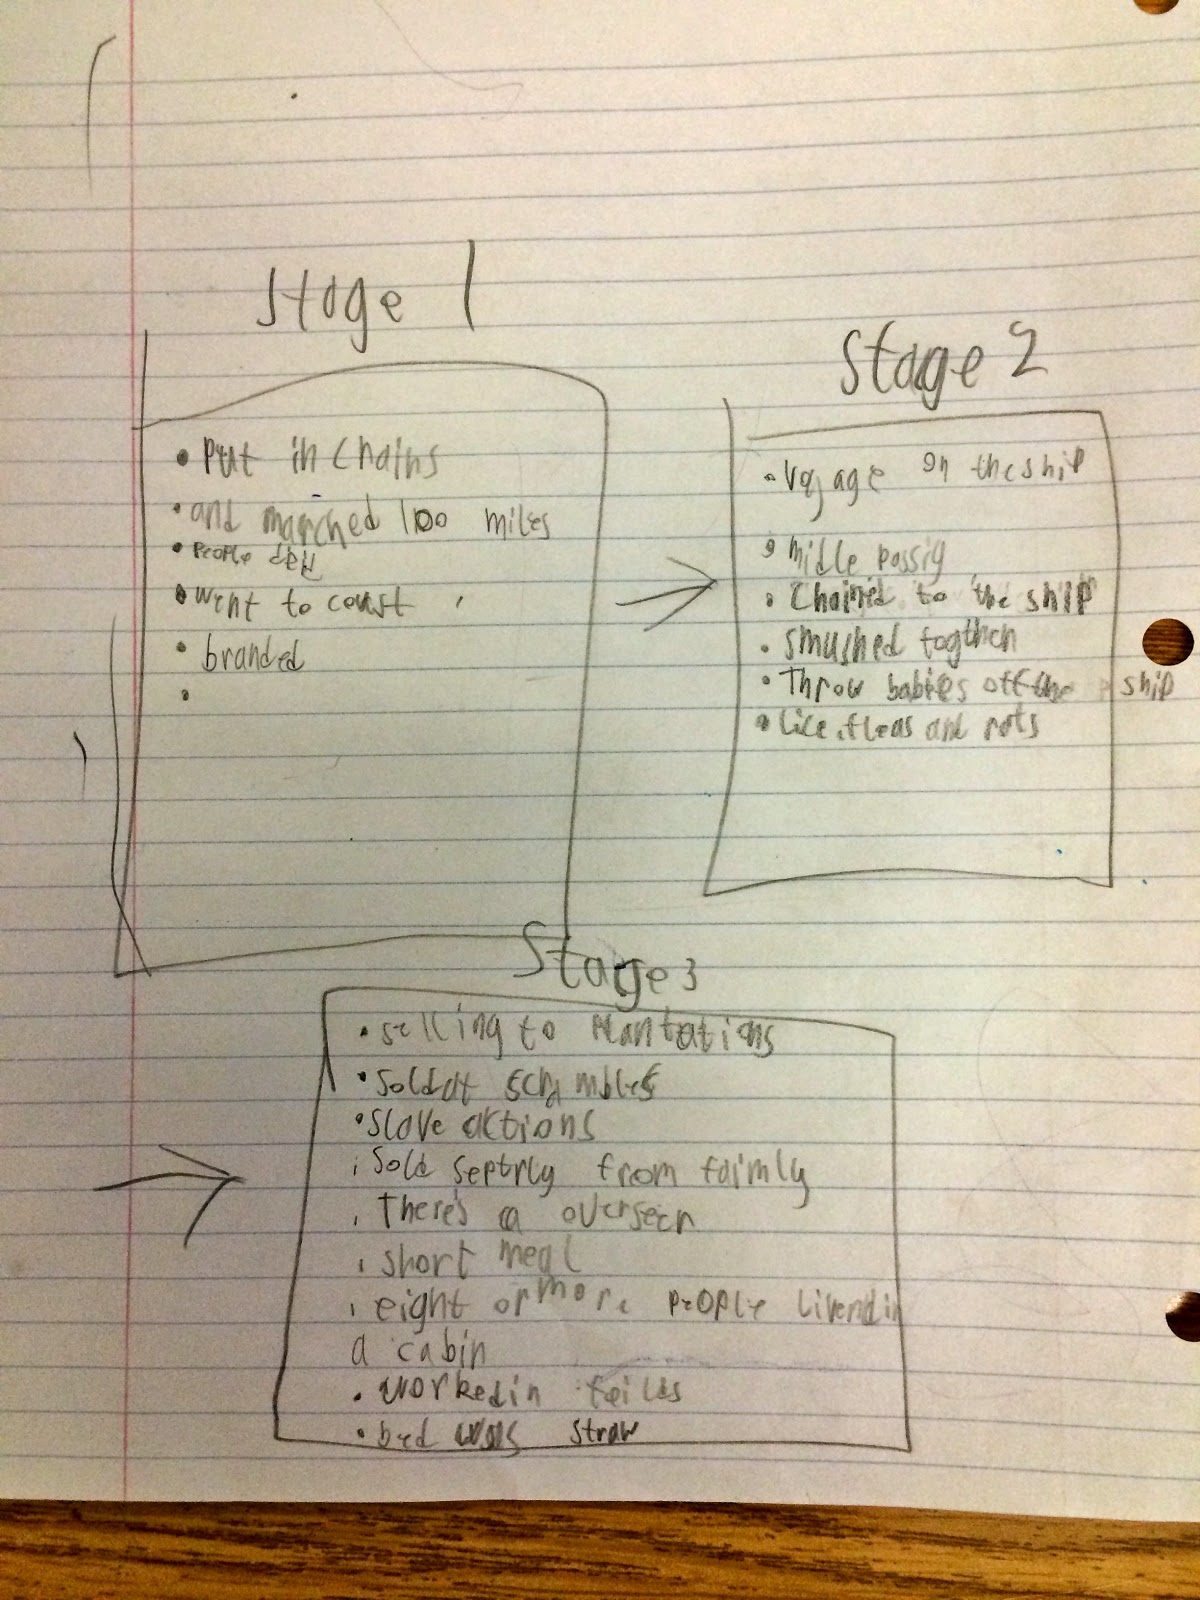 Stage 1
• Put in chains
• and marched 100 miles
• People
• went to coust
• branded
•
Stage 2
• Voyage on the ship
• midle passig
• Chained to the ship
• smushed togther
• Throw babies off the ship
• Lice, fleas and rats
Stage 3
• selling to Plantations
• Sold at scrambles
• Slave actions
• Sold septrly from faimly
• There's a overseer
• short meal
• eight or more people livend in
a cabin
• worked in feilds
• bed was straw